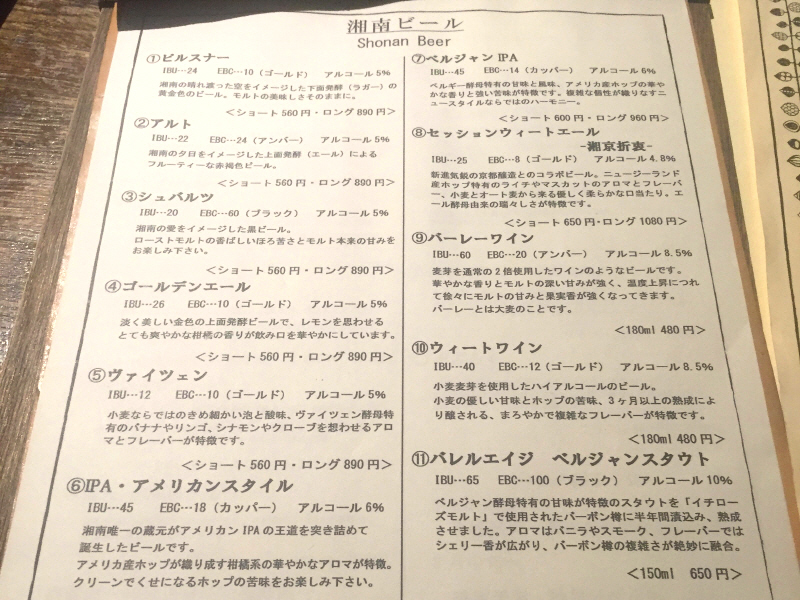 湘南ビール
Shonan Beer
①ピルスナー
IBU…24 EBC…10（ゴールド） アルコール5%
湘南の晴れ渡った空をイメージした下面発酵（ラガー）の
黄金色のビール。モルトの美味しさそのままに。
＜ショート 560円・ロング 890円＞
②アルト
IBU…22 EBC…24（アンバー） アルコール5%
湘南の夕日をイメージした上面発酵（エール）による
フルーティーな赤褐色ビール。
＜ショート 560円・ロング 890円＞
③シュバルツ
IBU…20 EBC…60（ブラック） アルコール5%
湘南の愛をイメージした黒ビール。
ローストモルトの香ばしいほろ苦さとモルト本来の甘みを
お楽しみ下さい。
＜ショート 560円・ロング 890円＞
④ゴールデンエール
IBU…26 EBC…10（ゴールド） アルコール5%
淡く美しい金色の上面発酵ビールで、レモンを思わせる
とても爽やかな柑橘の香りが飲み口を華やかにしています。
＜ショート 560円・ロング 890円＞
⑤ヴァイツェン
IBU…12 EBC…10（ゴールド） アルコール5%
小麦ならではのきめ細かい泡と酸味、ヴァイツェン酵母特
有のバナナやリンゴ、シナモンやクローブを想わせるアロ
マとフレーバーが特徴です。
＜ショート 560円・ロング 890円＞
⑥IPA・アメリカンスタイル
IBU…45 EBC…18（カッパー） アルコール6%
湘南唯一の蔵元がアメリカンIPAの王道を突き詰めて
誕生したビールです。
アメリカ産ホップが織り成す柑橘系の華やかなアロマが特徴。
クリーンでくせになるホップの苦味をお楽しみ下さい。
⑦ベルジャンIPA
IBU…45 EBC…14（カッパー） アルコール6%
ベルギー酵母特有の甘味と風味、アメリカ産ホップの華や
かな香りと強い苦味が特徴です。複雑な個性が織りなすニ
ュースタイルならではのハーモニー。
＜ショート 600円・ロング 960円＞
⑧セッションウィートエール
-湘京折衷-
IBU…25 EBC…8（ゴールド） アルコール4.8%
新進気鋭の京都醸造とのコラボビール。ニュージーランド
産ホップ特有のライチやマスカットのアロマとフレーバ
ー、小麦とオート麦から来る優しく柔らかな口当たり。エ
ール酵母由来の瑞々しさが特徴です。
＜ショート 650円・ロング 1080円＞
⑨バーレーワイン
IBU…60 EBC…20（アンバー） アルコール8.5%
麦芽を通常の2倍使用したワインのようなビールです。
華やかな香りとモルトの深い甘みが強く、温度上昇につれ
て徐々にモルトの甘みと果実香が強くなってきます。
バーレーとは大麦のことです。
＜180ml 480円＞
⑩ウィートワイン
IBU…40 EBC…12（ゴールド） アルコール8.5%
小麦麦芽を使用したハイアルコールのビール。
小麦の優しい甘味とホップの苦味、3ヶ月以上の熟成によ
り醸される、まろやかで複雑なフレーバーが特徴です。
＜180ml 480円＞
⑪バレルエイジ ベルジャンスタウト
IBU…65 EBC…100（ブラック） アルコール10%
ベルジャン酵母特有の甘味が特徴のスタウトを「イチロー
ズモルト」で使用されたバーボン樽に半年間漬込み、熟成
させました。アロマはバニラやスモーク、フレーバーでは
シェリー香が広がり、バーボン樽の複雑さが絶妙に融合。
＜150ml 650円＞